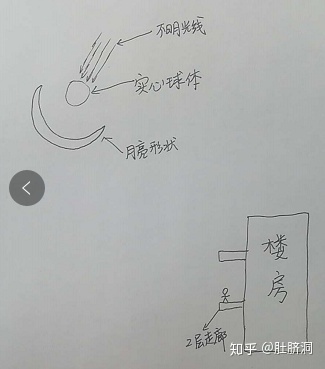 不明光线
实心球体
月亮形状
楼房
2层走廊
知乎 @肚脐洞